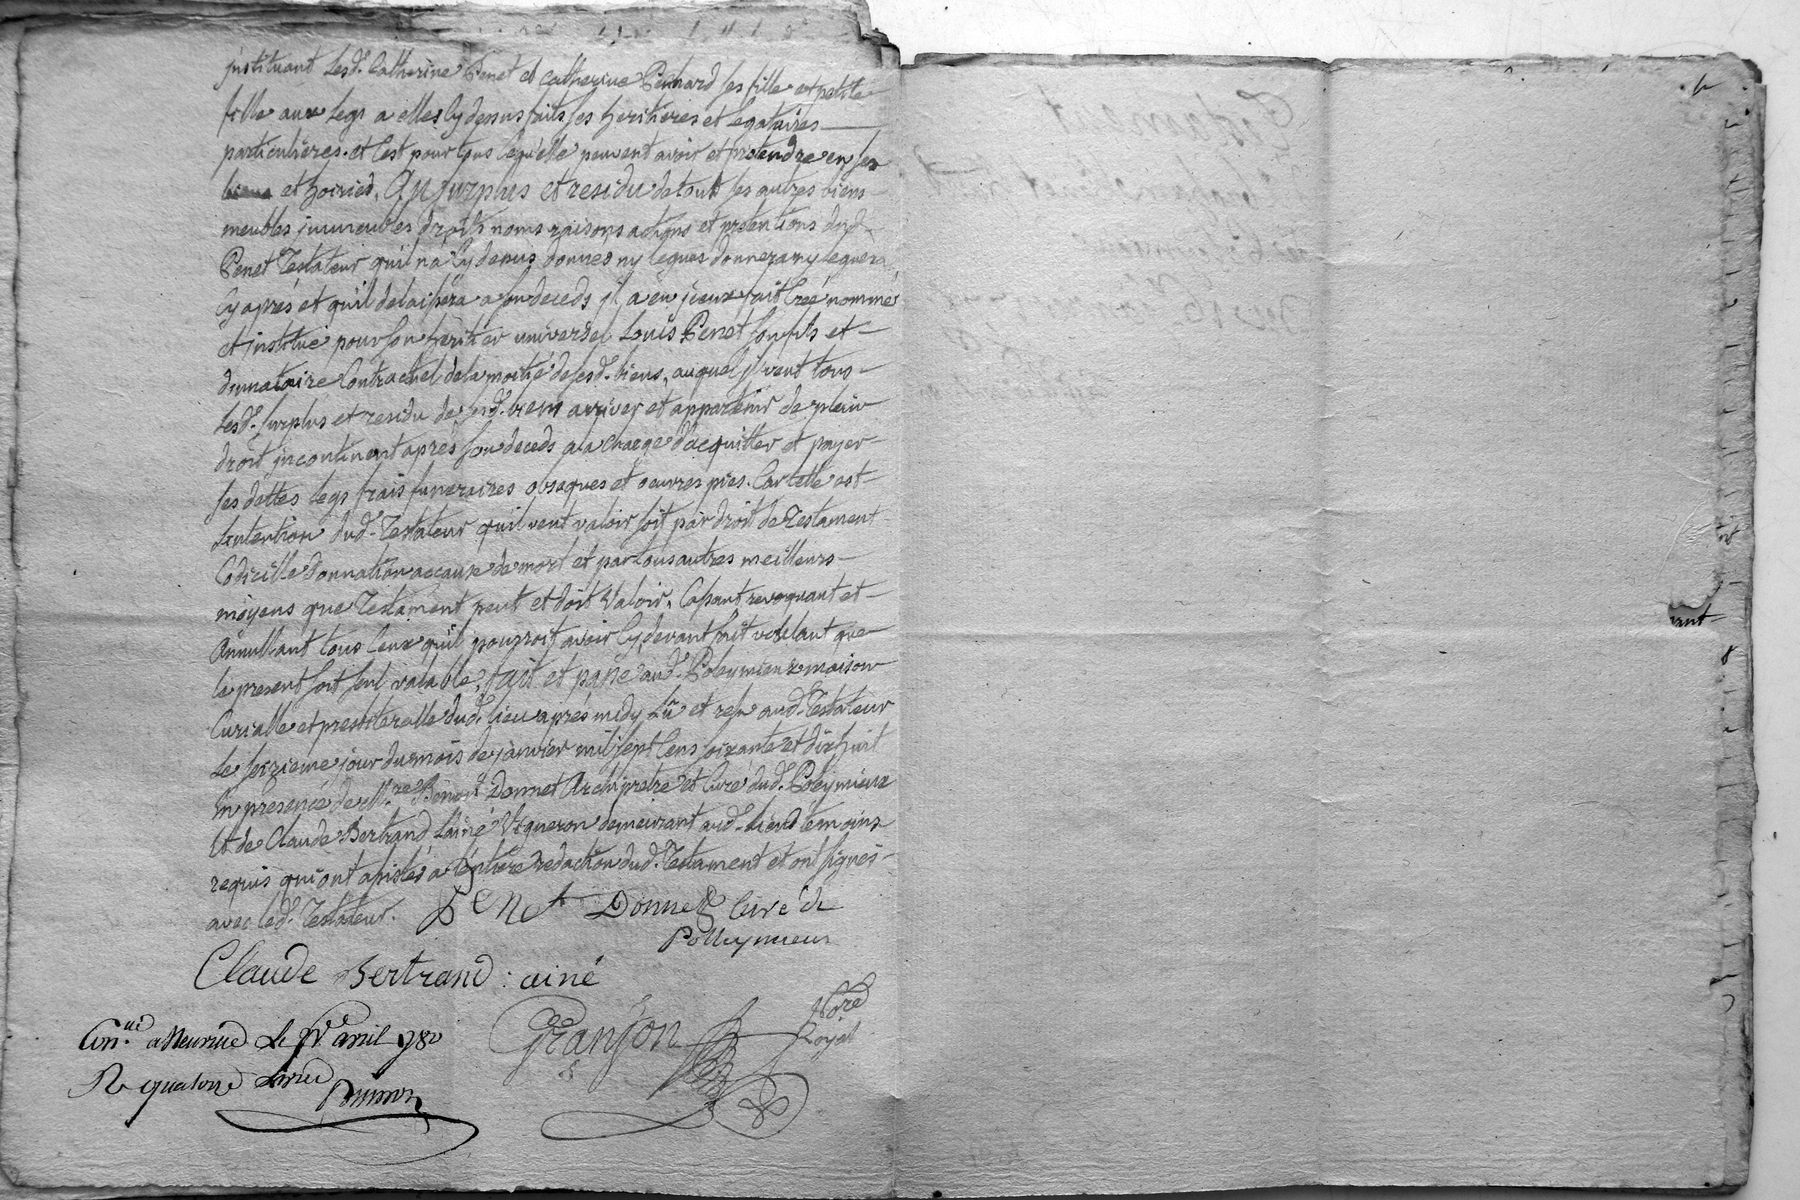 jnstituant lesd. Catherine Penet et Catherine Penhard ses fille et petite
fille aux legs a elles cy dessus faits ses heritieres et legataires
particulières. et cest pour tous ce qu'elle peuvent avoir et pretendre en ses
biens et hoiries, Au surplus et residu de tous ses autres biens
meubles jmmeubles droits noms raisons actions et pretentions dud.
Penet Testateur qu'il n'a cy dessus donnés ny legués donnera ny leguera
cy aprés et qu'il delaissera a son deceds jl a en jceux fait Creé nommé
et jnstitué pour son heritier universel Louis Penet son fils et
donnataire Contractuel de la moitié de sesd. biens, auquel jl veut tous
lesd. surplus et residu de sesd. biens arriver et appartenir de plein
droit jncontinent aprés son deceds a la charge d'acquitter et payer
ses dettes legs frais funeraires obseques et oeuvres pies. Car telle est
Lintention dud. Testateur qu'il veut valoir soit par droit de Testament
Codicille donnation a cause de mort et par tous autres meilleurs
moyens que Testament peut et doit Valoir, Cassant revoquant et
Annullant tous Ceux qu'il pourroit avoir cy devant fait voulant que
le present soit seul valable, fait et passé aud. Poleymieux maison
Curialle et presbiteralle dud. lieu apres midy Lû et relu aud. Testateur
Le seizieme jour du mois de janvier mil sept Cens soixante et dix huit
En presence de M.re Benoit Donnet Archipretre et Curé dud. Poleymieux
Et de Claude Bertrand L'ainé Vigneron demeurant aud. lieu témoins
requis qui ont assistés a l'entiere redaction dud. Testament et ont signés
avec led. Testateur. Penet Donnet Curé de
Polleymieux
Claude Bertrand : ainé
Granjon No.re
Royal
Con.lé a Neuville Le avril 1780
R quatorze Livres